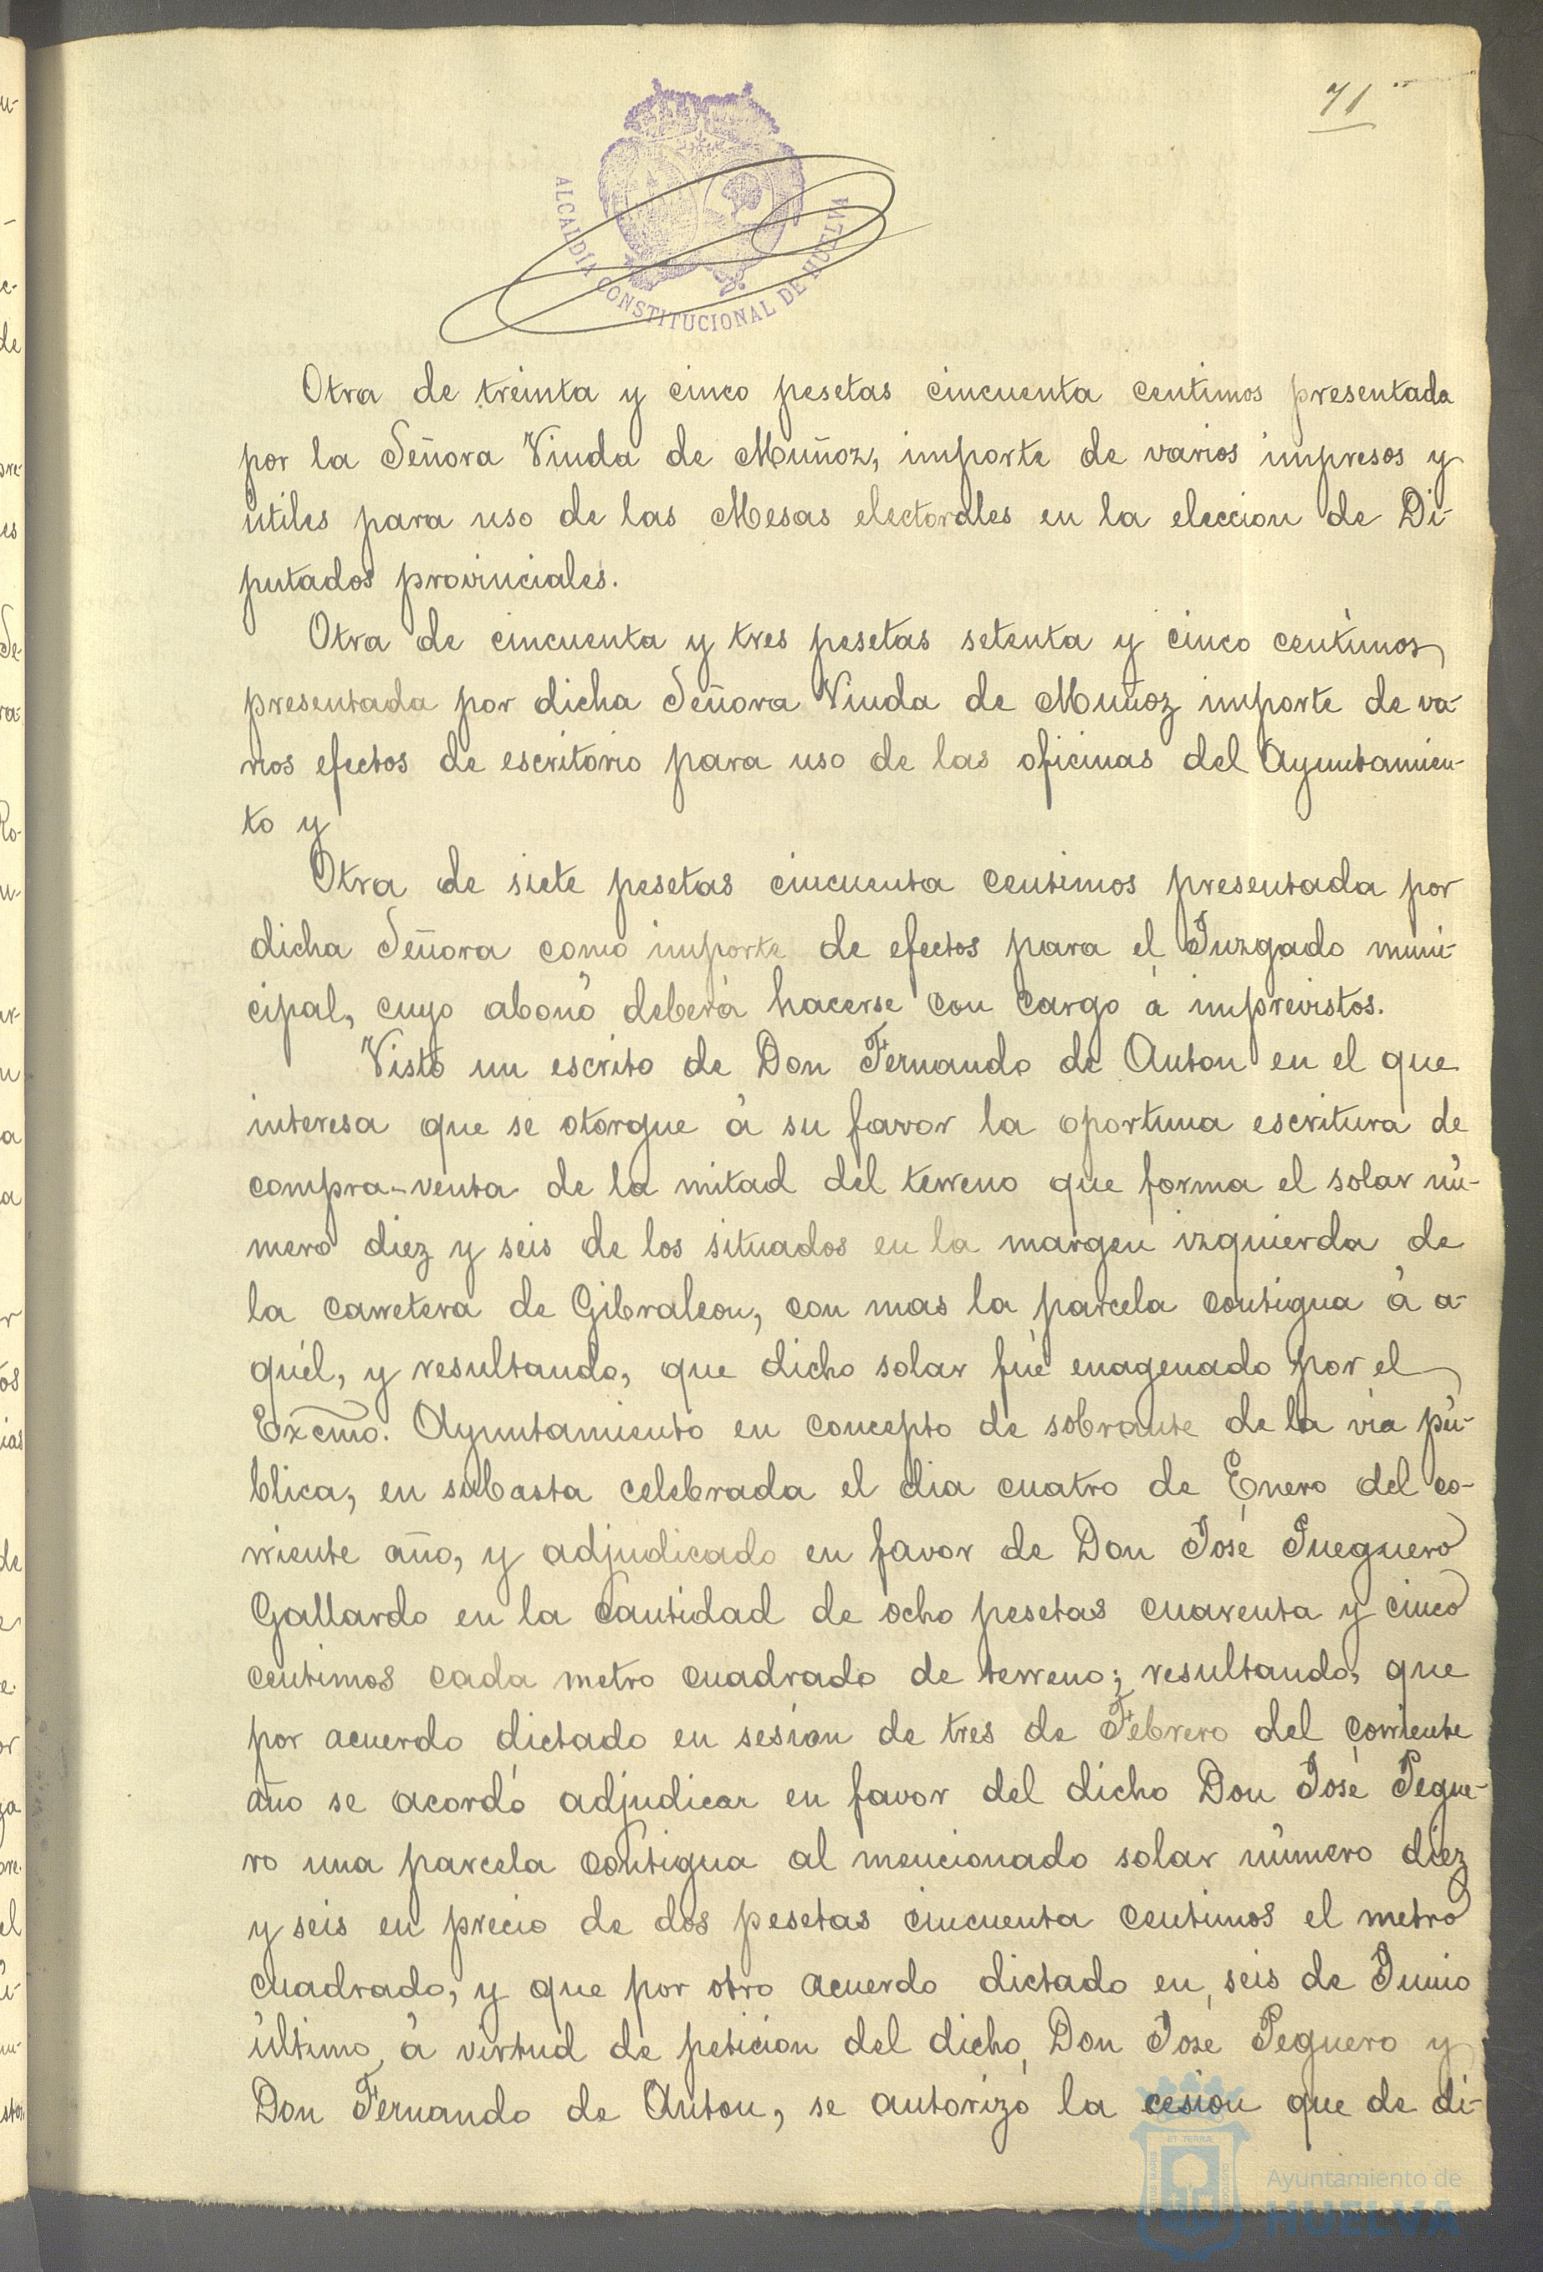 71
ALCALDÍA CONSTITUCIONAL DE HUELVA
Otra de treinta y cinco pesetas cincuenta centimos presentada
por la Señora Viuda de Muñoz, importe de varios impresos y
útiles para uso de las Mesas electorales en la eleccion de Di-
putados provinciales.
Otra de cincuenta y tres pesetas setenta y cinco centimos
presentada por dicha Señora Viuda de Muñoz importe de va-
rios efectos de escritorio para uso de las oficinas del Ayuntamien-
to y
Otra de siete pesetas cincuenta centimos presentada por
dicha Señora como importe de efectos para el Juzgado muni-
cipal, cuyo abono deberá hacerse con cargo á imprevistos.
Visto un escrito de Don Fernando de Anton en el que
interesa que se otorgue á su favor la oportuna escritura de
compra-venta de la mitad del terreno que forma el solar nú-
mero diez y seis de los situados en la margen izquierda de
la carretera de Gibraleon, con mas la parcela contigua á a-
quél, y resultando, que dicho solar fué enagenado por el
Excmo. Ayuntamiento en concepto de sobrante de la via pú-
blica, en subasta celebrada el dia cuatro de Enero del co-
rriente año, y adjudicado en favor de Don José Pueguero
Gallardo en la cantidad de ocho pesetas cuarenta y cinco
centimos cada metro cuadrado de terreno; resultando, que
por acuerdo dictado en sesion de tres de Febrero del corriente
año se acordó adjudicar en favor del dicho Don José Pegue-
ro una parcela contigua al mencionado solar número diez
y seis en precio de dos pesetas cincuenta centimos el metro
cuadrado, y que por otro acuerdo dictado en seis de Junio
último á virtud de peticion del dicho Don José Peguero y
Don Fernando de Anton, se autorizó la cesion que de di-
Ayuntamiento de
HUELVA